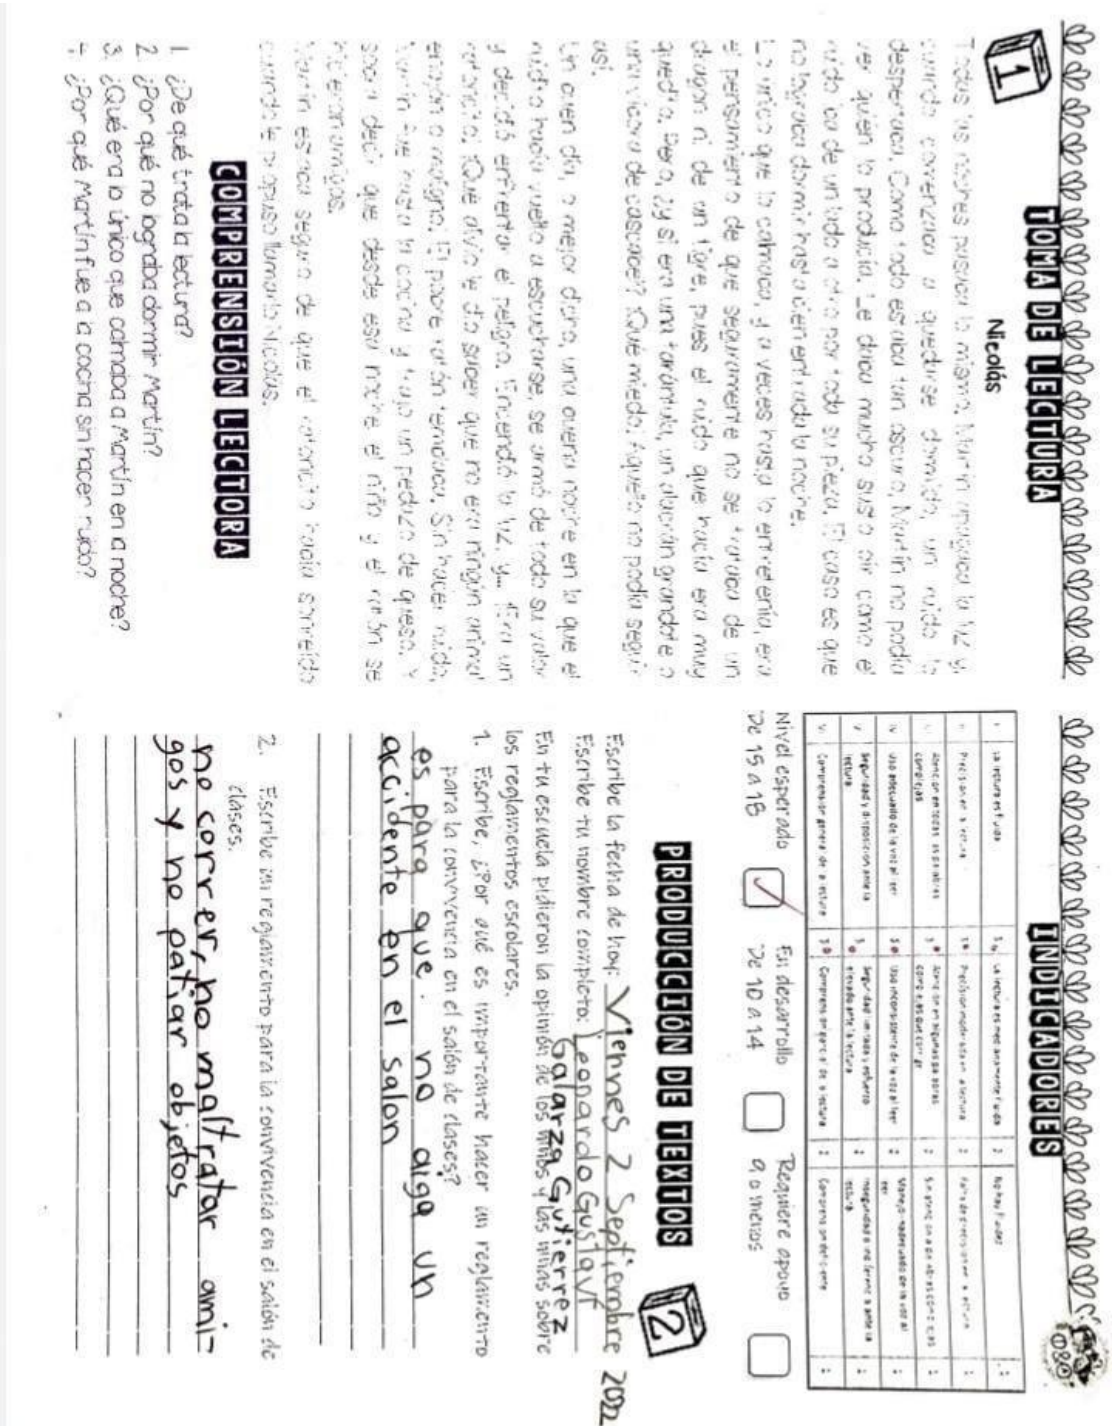 1
TOMA DE LECTURA
Nicolás
Todas las noches pasaba lo mismo. Martín apagaba la luz y,
cuando comenzaba a quedarse dormido, un ruido lo
despertaba. Como todo estaba tan oscuro, Martín no podía
ver quien lo producía. Le daba mucho susto oír como el
ruido iba de un lado a otro por toda su pieza. El caso es que
no lograba dormir hasta bien entrada la noche.
Lo único que lo calmaba, y a veces hasta lo entretenía, era
el pensamiento de que seguramente no se trataba de un
dragón ni de un tigre, pues el ruido que hacía era muy
quedito. Pero, ¿y si era una tarántula, un alacrán grandote o
una víbora de cascabel? ¡Qué miedo! Aquello no podía seguir
así.
Un buen día, o mejor dicho, una buena noche en la que el
ruidito había vuelto a escucharse, se armó de todo su valor
y decidió enfrentar el peligro. Encendió la luz, y... ¡Era un
ratoncito! ¡Qué alivio le dio saber que no era ningún animal
enojón o maligno. El pobre ratón temblaba. Sin hacer ruido,
Martín fue hasta la cocina y trajo un pedazo de queso. Y
sobra decir que desde esa noche el niño y el ratón se
hicieron amigos.
Martín estaba seguro de que el ratoncito había sonreído
cuando le propuso llamarlo Nicolás.
COMPRENSIÓN LECTORA
1. ¿De qué trata la lectura?
2. ¿Por qué no lograba dormir Martín?
3. ¿Qué era lo único que calmaba a Martín en la noche?
4. ¿Por qué Martín fue a la cocina sin hacer ruido?
INDICADORES
I La lectura es fluida 3 La lectura es medianamente fluida 2 No hay fluidez 1
II Precisión en la lectura 3 Precisión moderada en la lectura 2 Falta de precisión en la lectura 1
III Atención en todas las palabras complejas 3 Atención en algunas palabras complejas que corrige 2 Sin atención a palabras complejas 1
IV Uso adecuado de la voz al leer 3 Uso inconsistente de la voz al leer 2 Manejo inadecuado de la voz al leer 1
V Seguridad y disposición ante la lectura 3 Seguridad limitada y esfuerzo elevado ante la lectura 2 Inseguridad o indiferencia ante la lectura 1
VI Comprensión general de la lectura 3 Comprensión parcial de la lectura 2 Comprensión deficiente 1
Nivel esperado En desarrollo Requiere apoyo
De 15 a 18 De 10 a 14 9 o menos
PRODUCCIÓN DE TEXTOS
2
Escribe la fecha de hoy: Viernnes 2 Septiembre 2022
Escribe tu nombre completo: Leonardo Gustavf
Galarza Gutierrez
En tu escuela pidieron la opinión de los niños y las niñas sobre
los reglamentos escolares.
1. Escribe, ¿Por qué es importante hacer un reglamento
para la convivencia en el salón de clases?
es para que no aiga un
accidente en el salon
2. Escribe un reglamento para la convivencia en el salón de
clases.
no correr, no maltratar ami-
gos y no patiar objetos